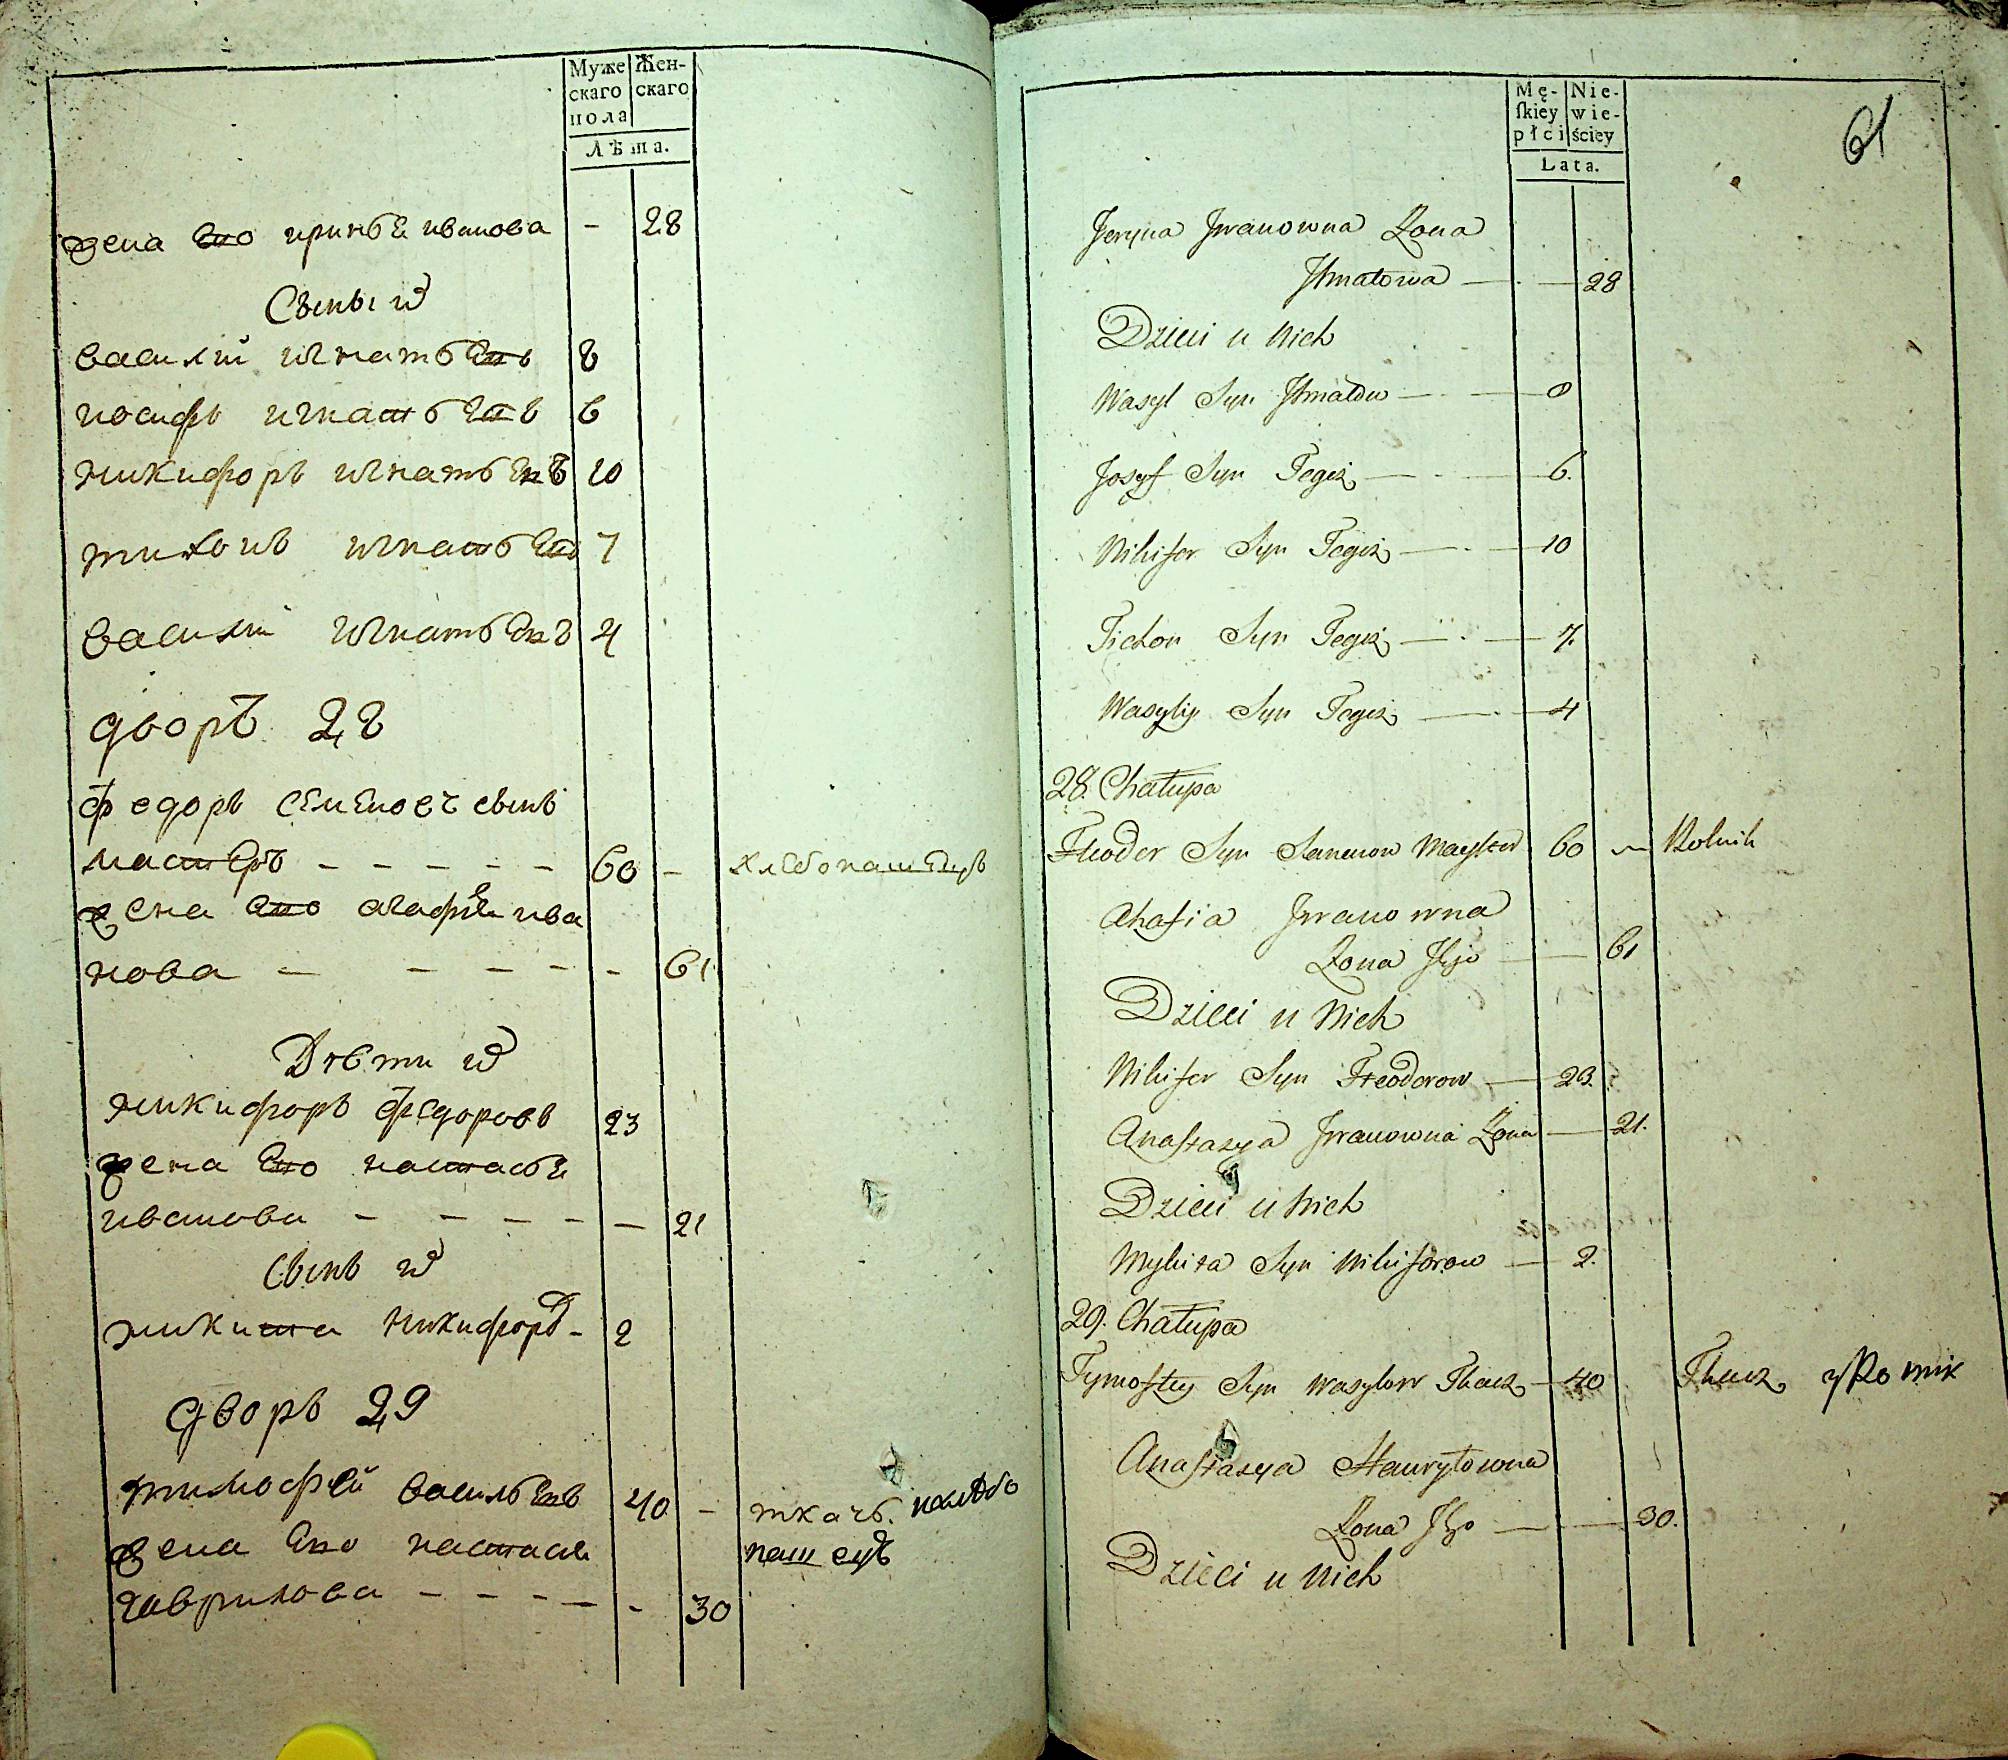 Муже
скаго
пола
Жен-
скаго
Лѣта.
жена его иринѣя иванова - 28
Сыны и
василий игнатьевъ 8
иосифъ игнатьевъ 6
никифоръ игнатьевъ 10
тихонъ игнатьевъ 7
василий игнатьевъ 4
дворъ 28
федоръ семеновъ сынъ
мастеръ - - - - - 60 - хлебопашецъ
жена его агафiя ива
нова - - - - - - 61
Дѣти и
никифоръ федоровъ 23
жена его настасья
иванова - - - - - 21
сынъ и
никита никифоровъ - 2
дворъ 29
тимофей васильевъ 40 - ткачъ. ихлѣбо
жена его настася пашецъ
гаврилова - - - - - 30
Mę-
skiey
płci
Nie-
wie-
ściey
Lata.
61
Jeryna Jwanowna Żona
Jhnatowa — 28
Dzieci u Nich
Wasyl Syn Jhnatow — 8
Josyf Syn Tegoż — 6.
Nikifor Syn Tegoż — 10
Tichon Syn Tegoż — 7.
Wasyliy Syn Tegoż — 4
28. Chałupa
Fteodor Syn Semenow Mayster 60 — Rolnik
Ahafia Jwanowna
Żona Jgo — 61
Dzieci u Nich
Nikifor Syn Fteodorow — 23.
Anastazya Jwanowna Żona — 21.
Dzieci u Nich
Mykita Syn Nikiforow — 2.
29. Chałupa
Tymoftey Syn Wasylow Tkacz — 40 Tkacz yRolnik
Anastazya Hawryłowna
Żona Jgo — 30.
Dzieci u Nich